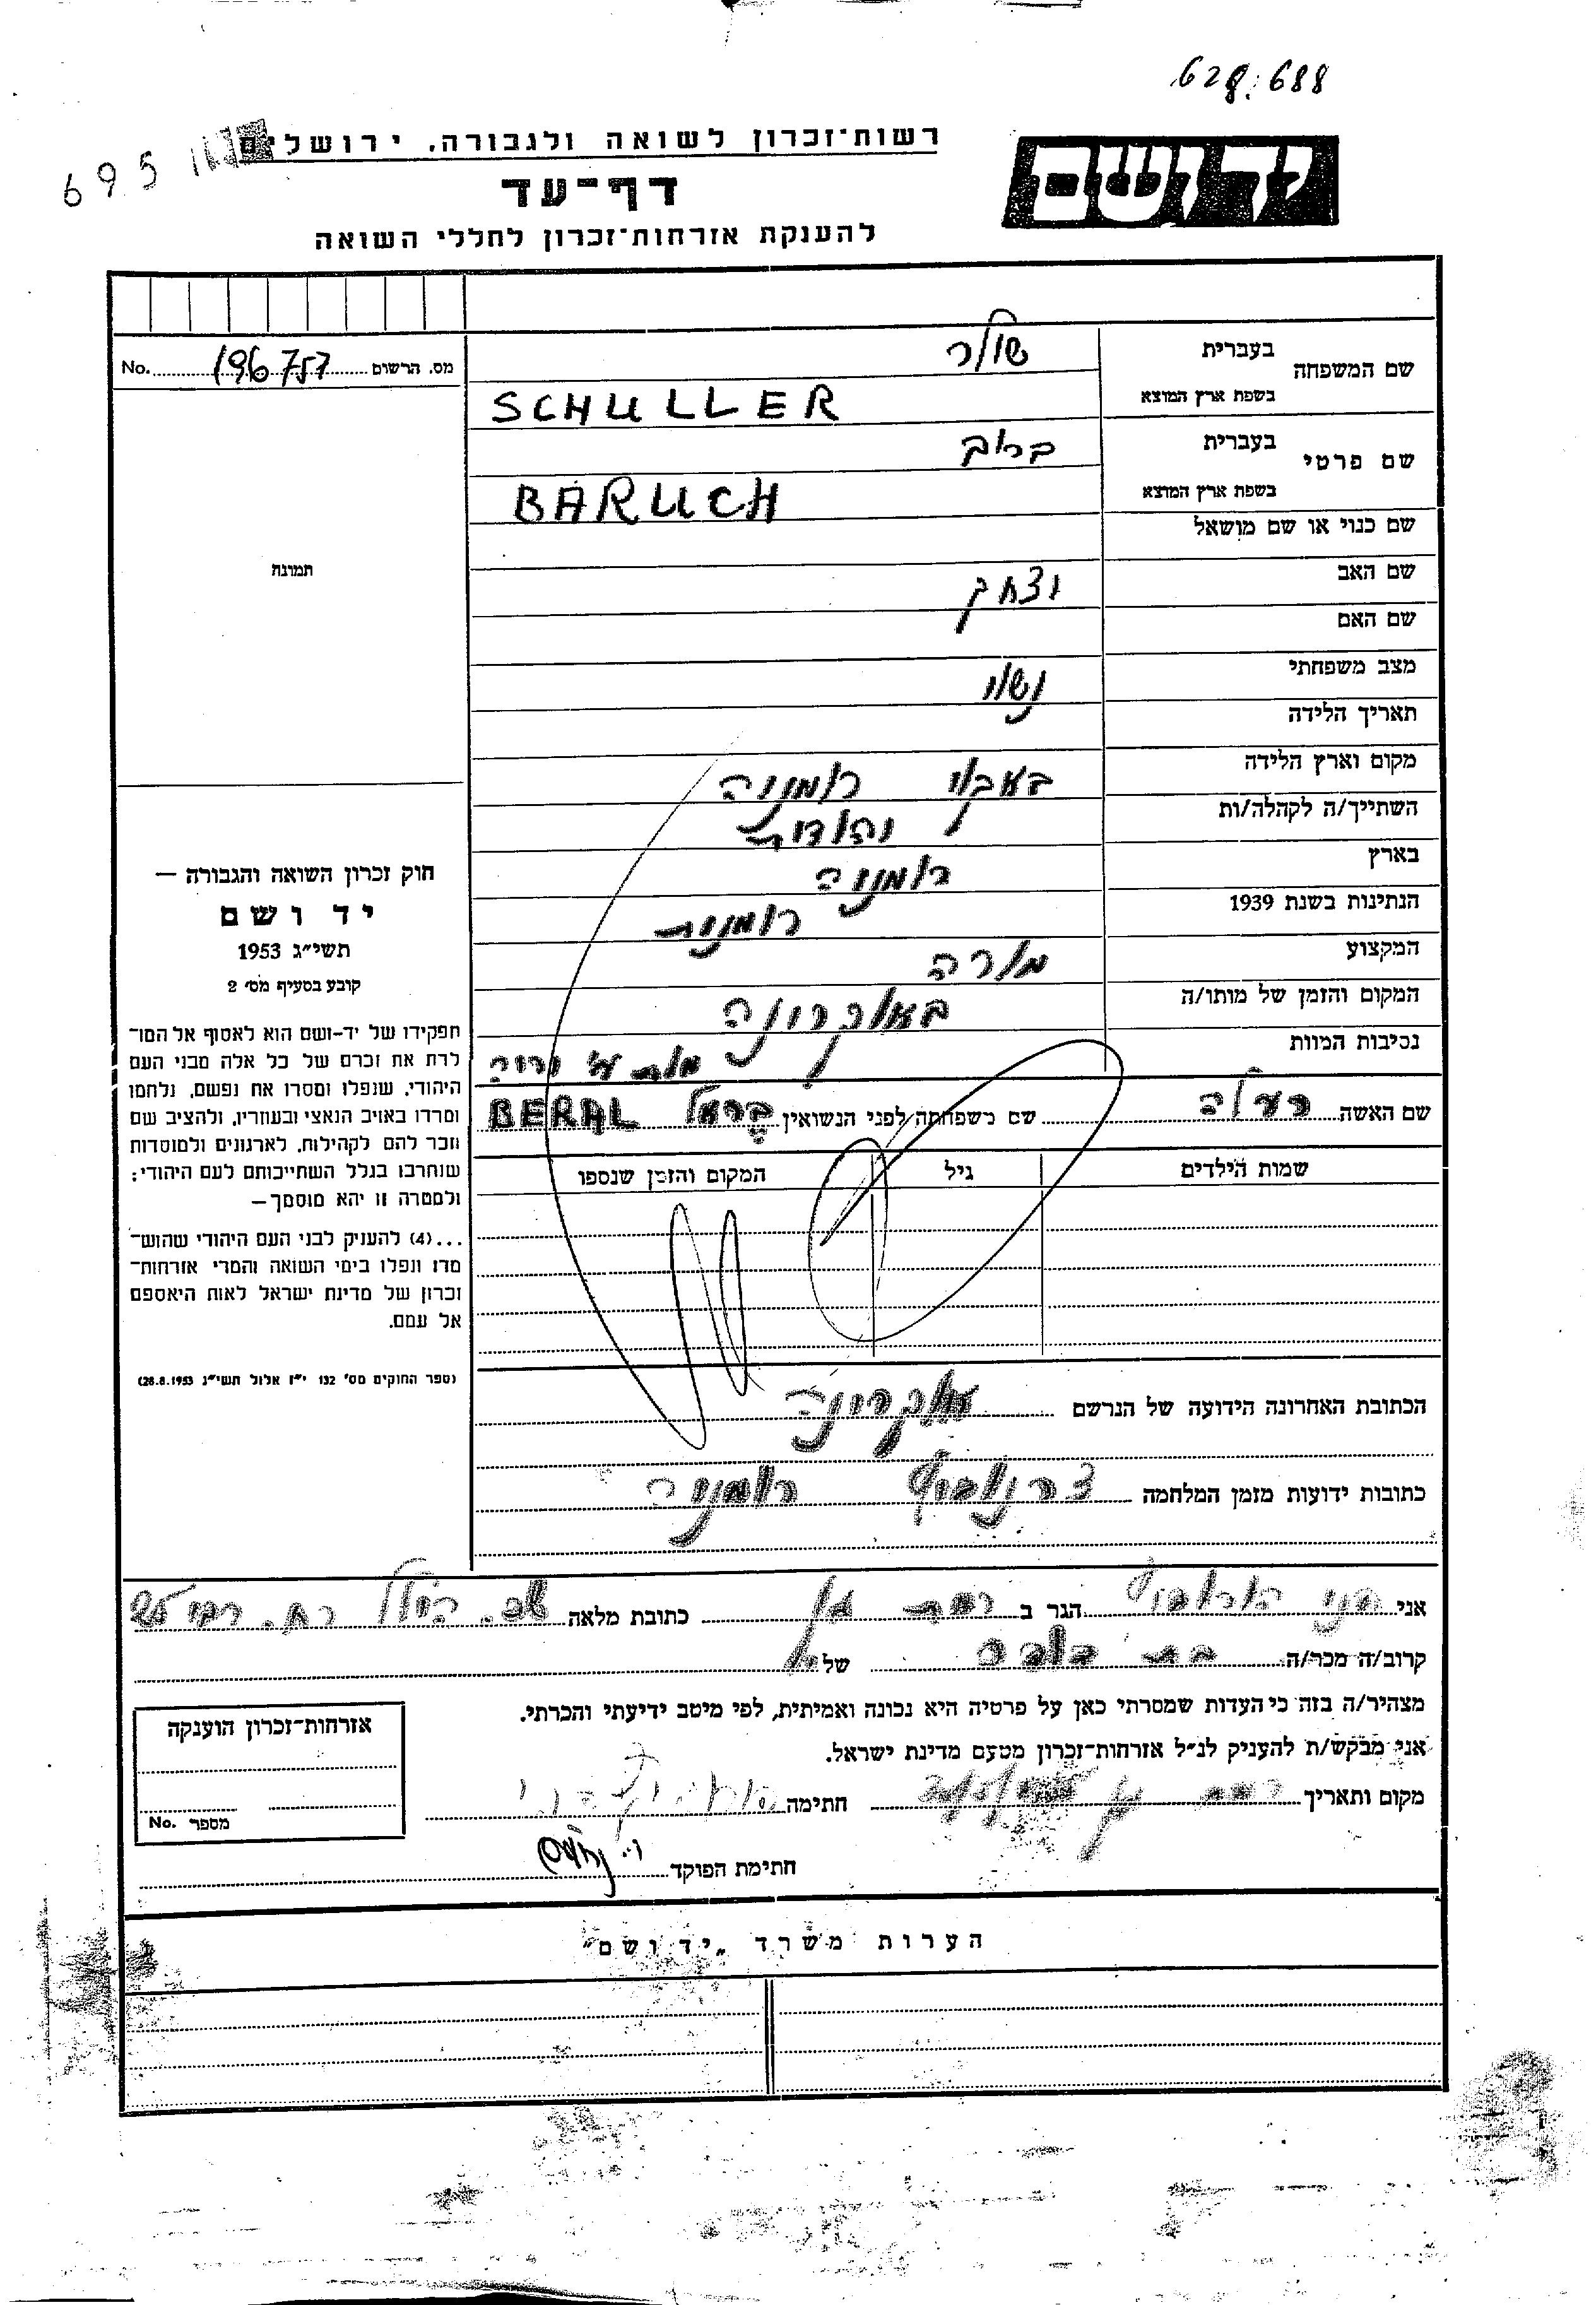 628.688
695
רשות־זכרון לשואה ולגבורה, ירושלים
יד ושם
דף־עד
להענקת אזרחות־זכרון לחללי השואה
מס. הרשום 196757 No.
תמונה
חוק זכרון השואה והגבורה —
יד ושם
תשי״ג 1953
קובע בסעיף מס׳ 2
תפקידו של יד-ושם הוא לאסוף אל המו־
לדת את זכרם של כל אלה מבני העם
היהודי, שנפלו ומסרו את נפשם, נלחמו
ומרדו באויב הנאצי ובעוזריו, ולהציב שם
וזכר להם לקהילות, לארגונים ולמוסדות
שנחרבו בגלל השתייכותם לעם היהודי;
ולמטרה זו יהא מוסמך—
...(4) להעניק לבני העם היהודי שהוש־
מדו ונפלו בימי השואה והמרי אזרחות־
זכרון של מדינת ישראל לאות היאספם
אל עמם.
(ספר החוקים מס׳ 132 י״ז אלול תשי״ג 28.8.1953)
שם המשפחה בעברית שולר
בשפת ארץ המוצא SCHULLER
שם פרטי בעברית ברוך
בשפת ארץ המוצא BARUCH
שם כנוי או שם מושאל
שם האב יצחק
שם האם
מצב משפחתי נשוי
תאריך הלידה
מקום וארץ הלידה רומניה
השתייך/ה לקהלה/ות יהודית
בארץ רומניה
הנתינות בשנת 1939 רומנית
המקצוע מורה
המקום והזמן של מותו/ה
נסיבות המוות מות ע״י יריה
שם האשה שם משפחתה לפני הנשואין בראל BERAL
שמות הילדים גיל המקום והזמן שנספו
הכתובת האחרונה הידועה של הנרשם
כתובות ידועות מזמן המלחמה צרנוביץ רומניה
אני הגר ב רמת גן כתובת מלאה
קרוב/ה מכר/ה של
מצהיר/ה בזה כי העדות שמסרתי כאן על פרטיה היא נכונה ואמיתית, לפי מיטב ידיעתי והכרתי.
אני מבקש/ת להעניק לנ״ל אזרחות־זכרון מטעם מדינת ישראל.
מקום ותאריך רמת גן חתימה
חתימת הפוקד
אזרחות־זכרון הוענקה
מספר No.
הערות משרד „יד ושם״